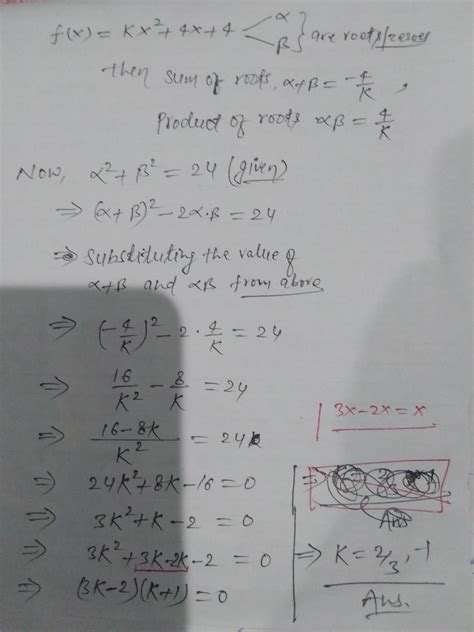 f(x) = Kx² + 4x + 4 < α β } are roots/zeroes
then sum of roots, α+β = -4/K ,
Product of roots αβ = 4/K
Now, α² + β² = 24 (given)
⇒ (α+β)² - 2α.β = 24
⇒ Substituting the value of
α+β and αβ from above
⇒ (-4/K)² - 2 · 4/K = 24
⇒ 16/K² - 8/K = 24
⇒ (16-8K)/K² = 24
⇒ 24K² + 8K - 16 = 0
⇒ 3K² + K - 2 = 0
⇒ 3K² + 3K - 2K - 2 = 0
⇒ (3K-2)(K+1) = 0
3x-2x = x
⇒
Ans
⇒ K = 2/3, -1
Ans.